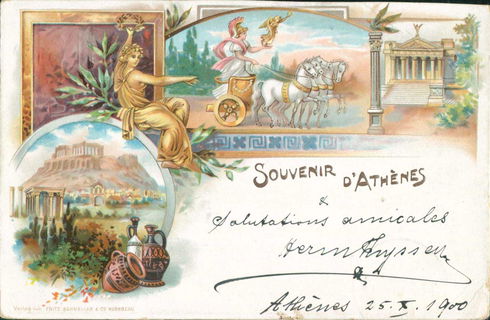 SOUVENIR D'ATHÈNES
&
Salutations amicales
Athènes 25.X.1900
Verlag von FRITZ SCHNELLER & CO NÜRNBERG